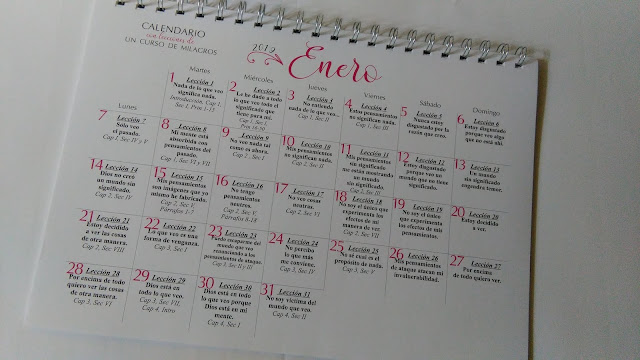 CALENDARIO
con lecciones de
UN CURSO DE MILAGROS
2019
Enero
Lunes
Martes
Miércoles
Jueves
Viernes
Sábado
Domingo
1 Lección 1
Nada de lo que veo
significa nada.
Introducción, Cap 1,
Sec 1, Prin 1-15
2 Lección 2
Le he dado a todo
lo que veo todo el
significado que
tiene para mí.
Cap 1, Sec 1
Prin 16-50
3 Lección 3
No entiendo
nada de lo que veo.
Cap 1, Sec II
4 Lección 4
Estos pensamientos
no significan nada.
Cap 1, Sec III
5 Lección 5
Nunca estoy
disgustado por la
razón que creo.
6 Lección 6
Estoy disgustado
porque veo algo
que no está ahí.
7 Lección 7
Sólo veo
el pasado.
Cap 1, Sec IV y V
8 Lección 8
Mi mente está
absorbida con
pensamientos del
pasado.
Cap 1, Sec VI y VII
9 Lección 9
No veo nada tal
como es ahora.
Cap 2, Sec I
10 Lección 10
Mis pensamientos
no significan nada.
Cap 2, Sec II
11 Lección 11
Mis pensamientos
sin significado
me están mostrando
un mundo sin
significado.
Cap 2, Sec III
12 Lección 12
Estoy disgustado
porque veo un
mundo que no tiene
significado.
13 Lección 13
Un mundo
sin significado
engendra temor.
14 Lección 14
Dios no creó
un mundo sin
significado.
Cap 2, Sec IV
15 Lección 15
Mis pensamientos
son imágenes que yo
mismo he fabricado.
Cap 2, Sec V,
Párrafos 1-7
16 Lección 16
No tengo
pensamientos
neutros.
Cap 2, Sec V,
Párrafos 8-18
17 Lección 17
No veo cosas
neutras.
Cap 2, Sec VI
18 Lección 18
No soy el único que
experimenta los
efectos de mi
manera de ver.
Cap 2, Sec VII
19 Lección 19
No soy el único
que experimenta los
efectos de mis
pensamientos.
20 Lección 20
Estoy decidido
a ver.
21 Lección 21
Estoy decidido
a ver las cosas
de otra manera.
Cap 2, Sec VIII
22 Lección 22
Lo que veo es una
forma de venganza.
Cap 3, Sec I
23 Lección 23
Puedo escaparme del
mundo que veo
renunciando a los
pensamientos de ataque.
Cap 3, Sec II y III
24 Lección 24
No percibo
lo que más
me conviene.
Cap 3, Sec IV
25 Lección 25
No sé cuál es el
propósito de nada.
Cap 3, Sec V
26 Lección 26
Mis pensamientos
de ataque atacan mi
invulnerabilidad.
27 Lección 27
Por encima
de todo quiero ver.
28 Lección 28
Por encima de todo
quiero ver las cosas
de otra manera.
Cap 3, Sec VI
29 Lección 29
Dios está en
todo lo que veo.
Cap 3, Sec VII,
Cap 4, Intro
30 Lección 30
Dios está en todo
lo que veo porque
Dios está en mi
mente.
Cap 4, Sec I
31 Lección 31
No soy víctima del
mundo que veo.
Cap 4, Sec II